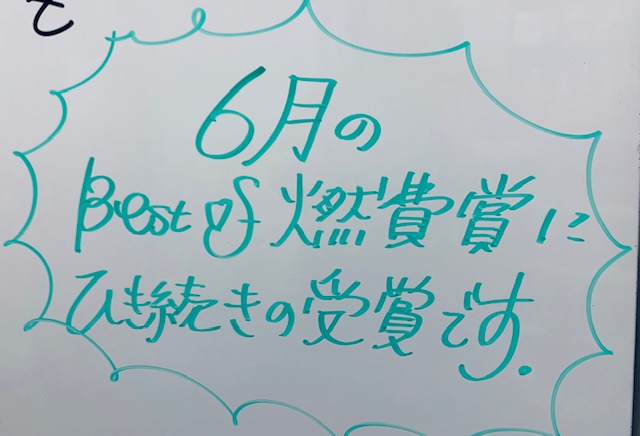 6月の
Best of 燃費賞に
ひき続きの受賞です.